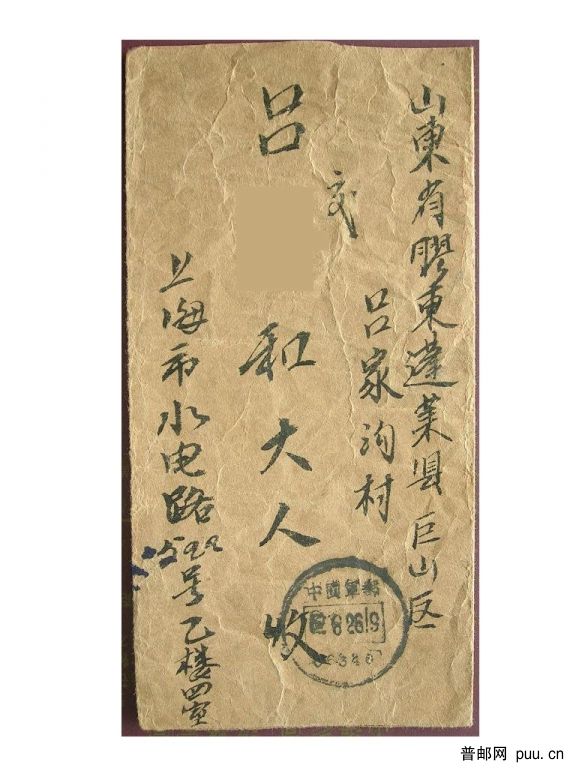 山東省膠東蓬莱县巨山区
吕家沟村
交
吕
和大人
收
上海市水电路522号乙楼四室
中國軍郵
普邮网 puu.cn